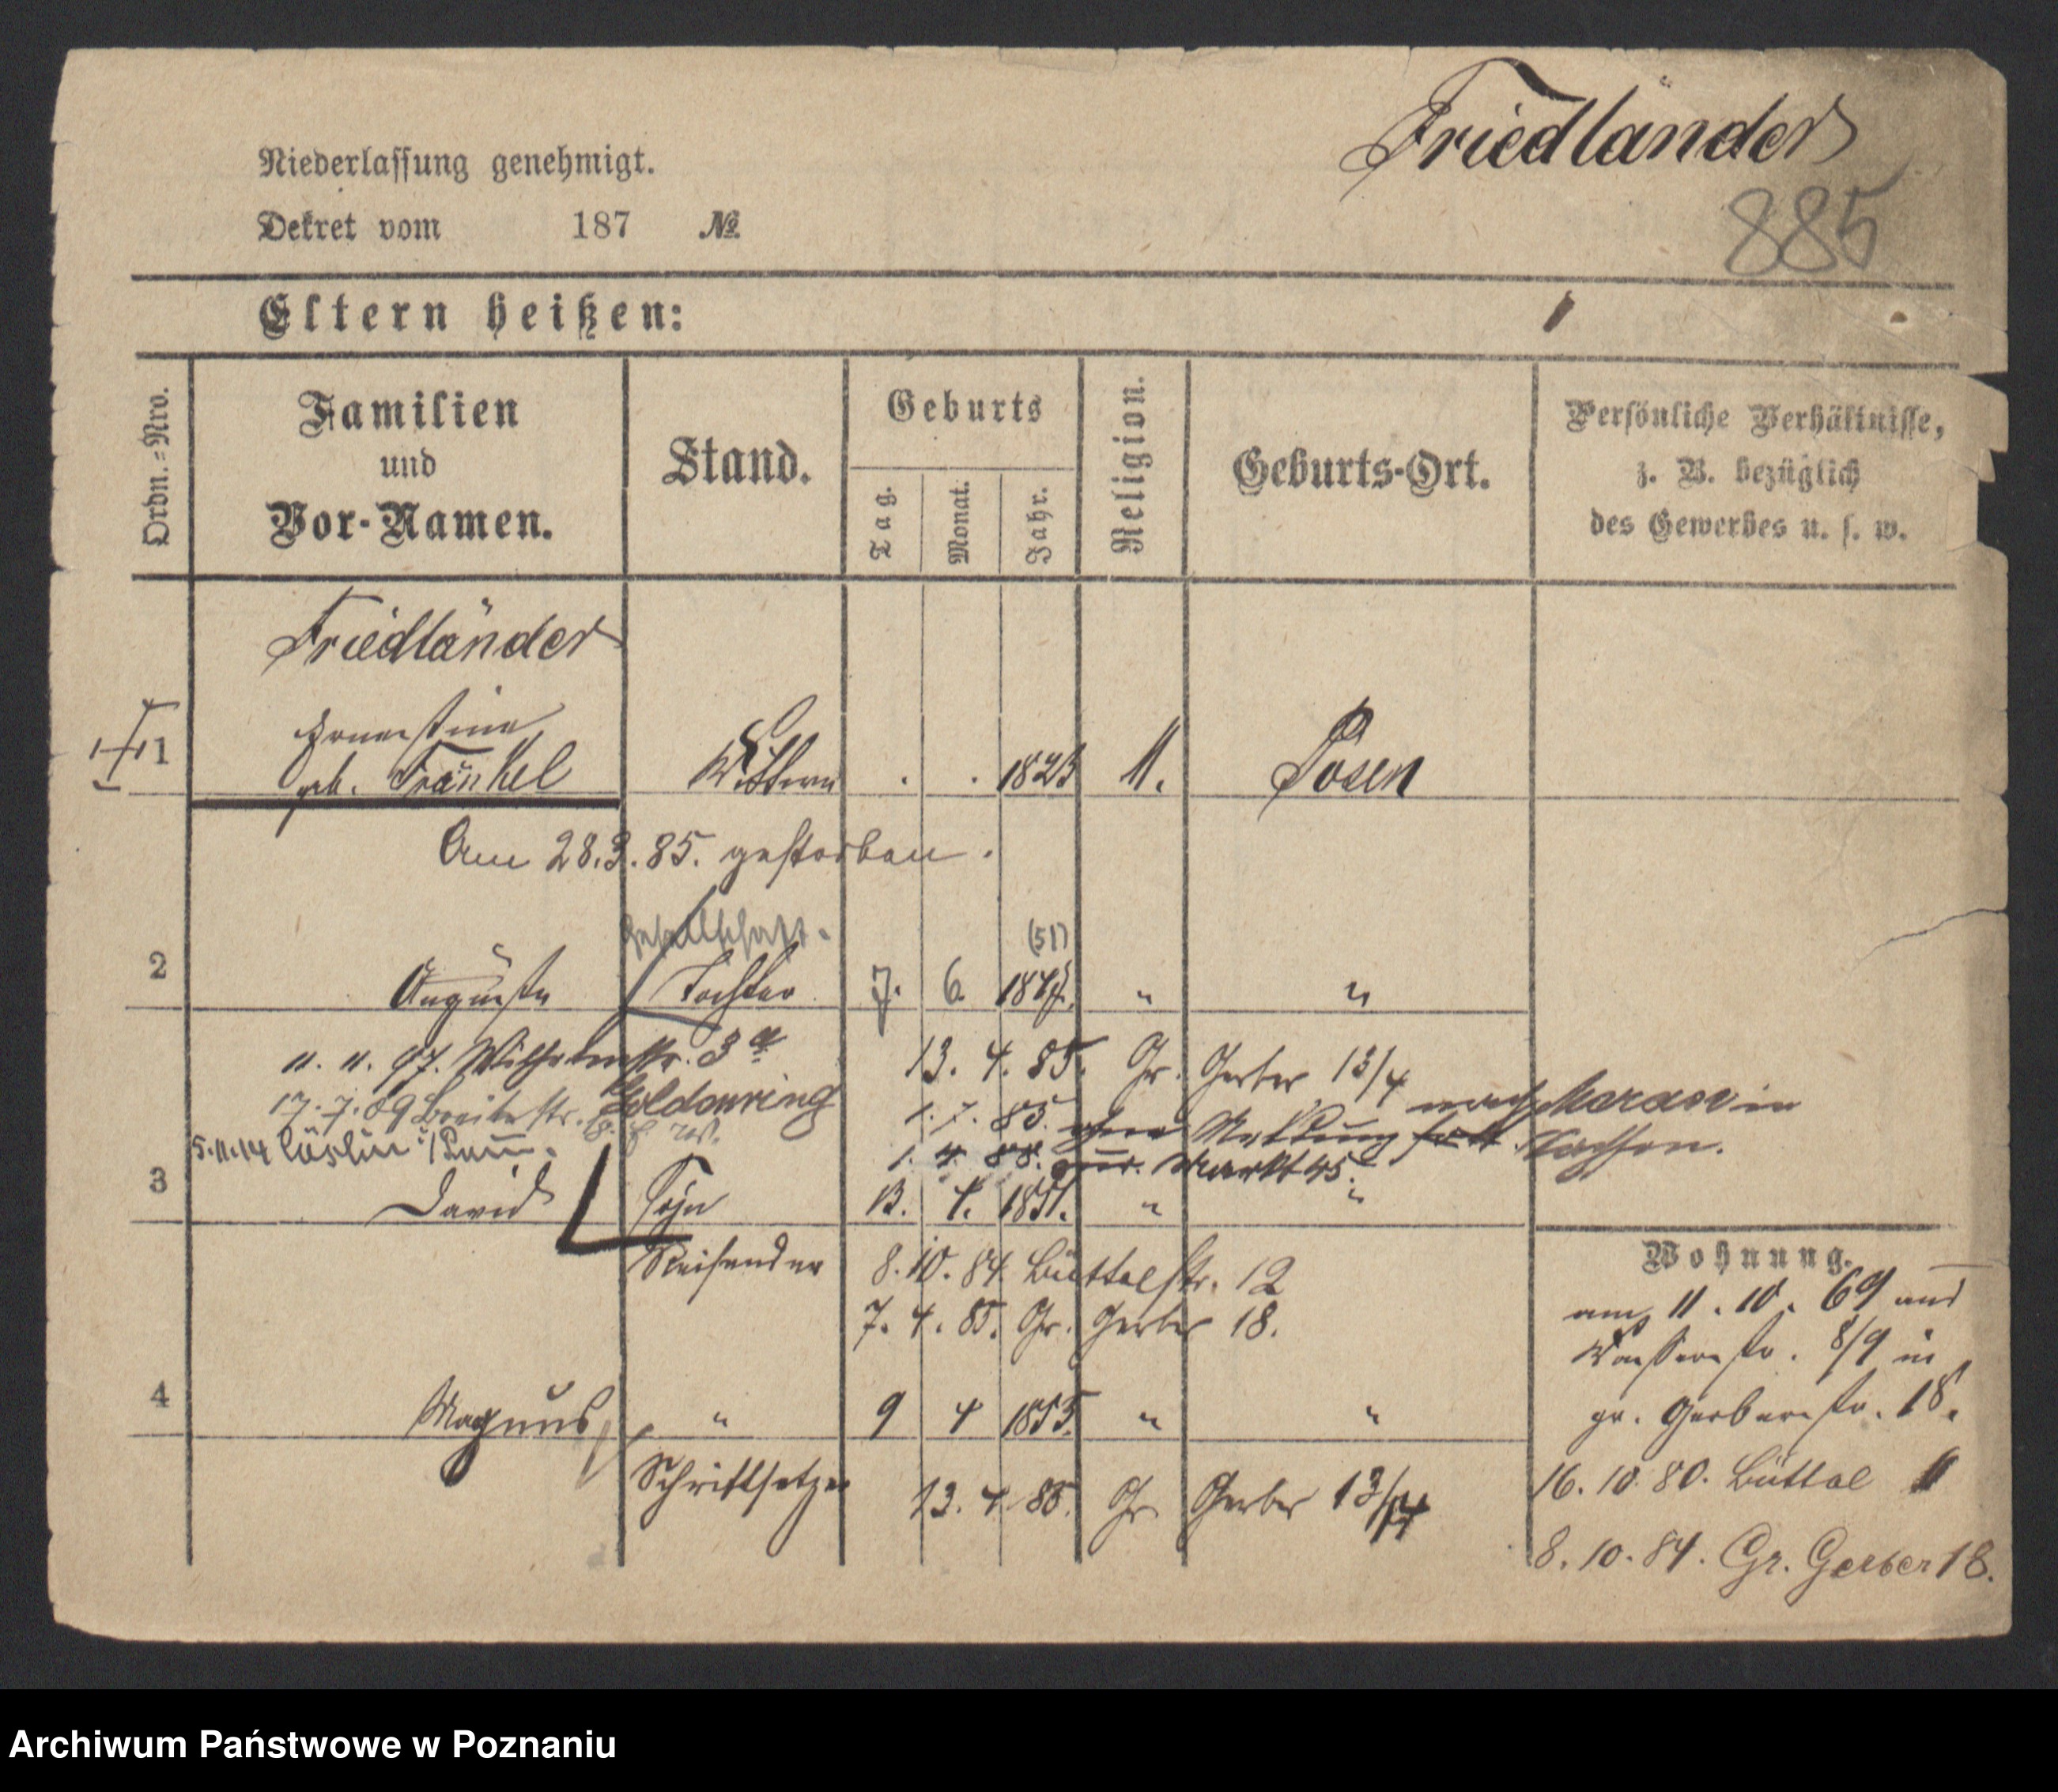 Friedländer
885
Niederlassung genehmigt.
Dekret vom 187 №
Eltern heißen:
Ordn.-Nro.
Familien
und
Vor-Namen.
Stand.
Geburts
Tag.
Monat.
Jahr.
Religion.
Geburts-Ort.
Persönliche Verhältnisse,
z. B. bezüglich
des Gewerbes u. s. w.
Friedländer
1 Ernestine
geb. Fränkel Wittwe . . 1823 M. Posen
Am 28.3.85. gestorben.
Gesellschaft.
(51)
2 Auguste Tochter 7. 6. " "
11. 11. 97. Wilhelmstr. 3a 13. 4. 85. Gr. Gerber 13/4
17. 7. 09 Breitestr. Goldenring 1. 7. 85. ohne Meldung fort nach in Sachsen.
5.11.14 Cöslin i/Pom. 1. 4. 88. Markt 45.
3 David Sohn 13. 4. 1851. " "
Reisender 8. 10. 84. Büttelstr. 12
7. 4. 85. Gr. Gerber 18.
4 Magnus " 9 4 1853. " "
Schriftsetzer 13. 4. 85. Gr. Gerber 13/14
Wohnung.
am 11. 10. 69 aus
Wasserstr. 8/9 in
gr. Gerberstr. 18.
16. 10. 80. Büttel
8. 10. 84. Gr. Gerber 18.
Archiwum Państwowe w Poznaniu